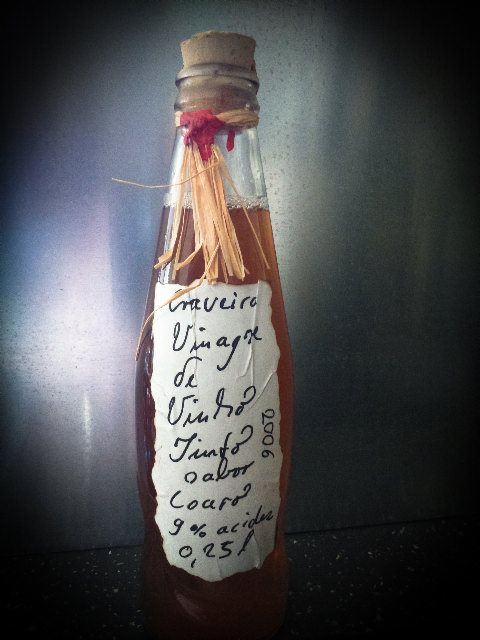 Craveiro
Vinagre
de
Vinho
Tinto
sabor
Couro
9% acidez
0,25 l
2006